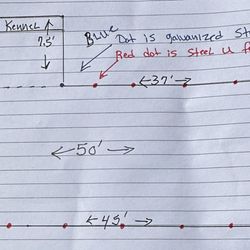 Kennel
7.5'
Blue Dot is galvanized St
Red dot is Steel U f
37'
50'
45'